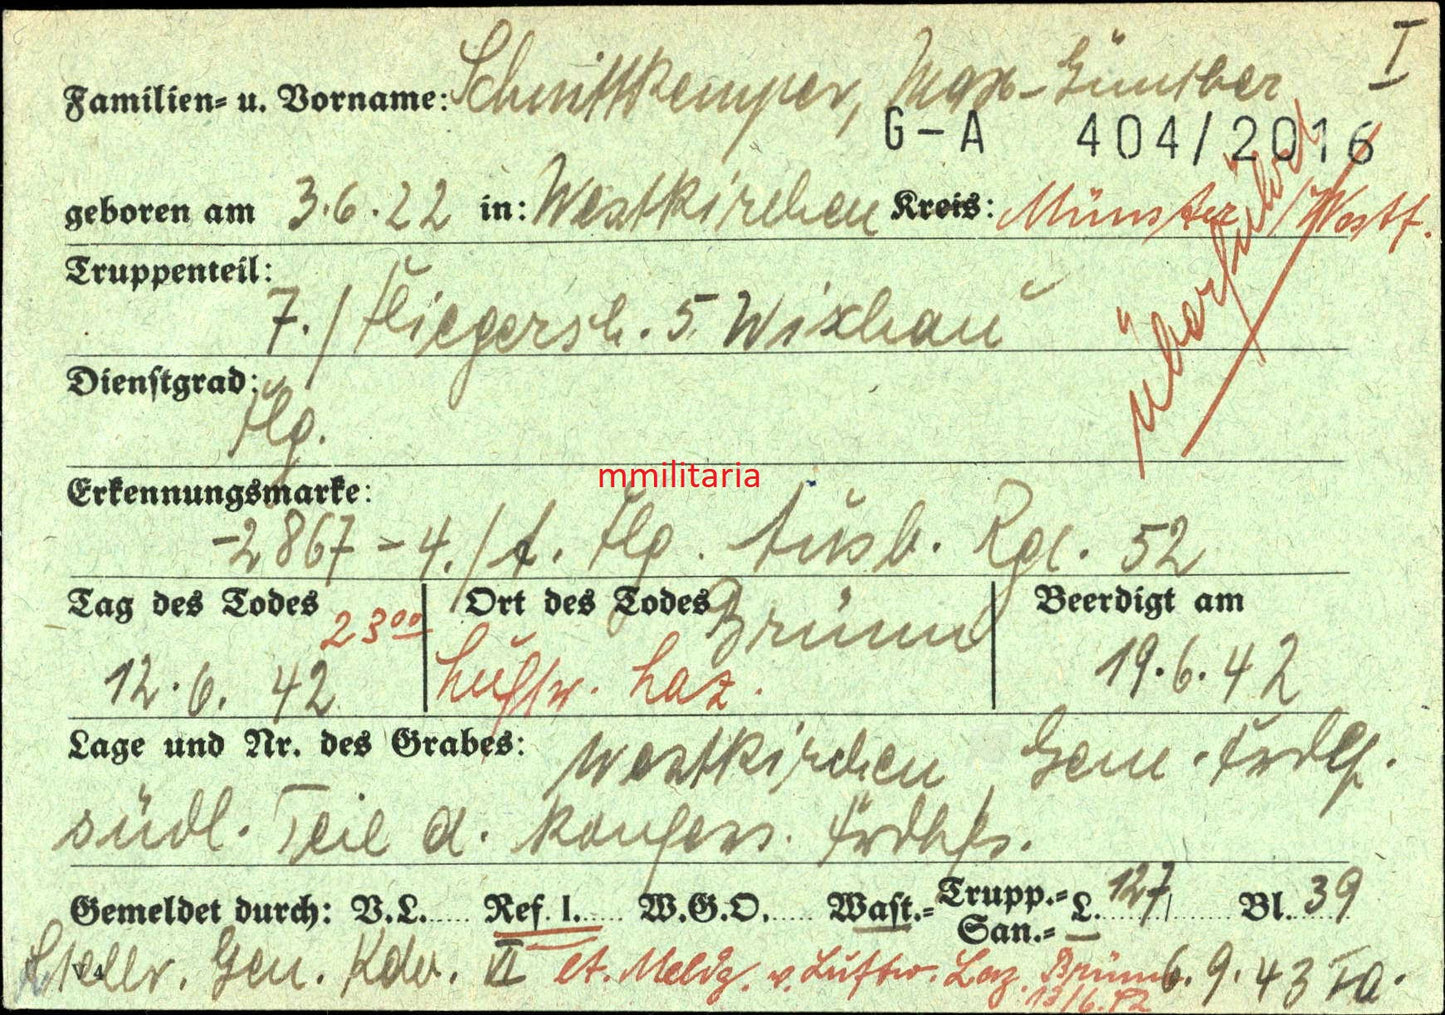 I
Familien= u. Vorname: Schnittkemper, Max-Günther
G-A 404/2016
geboren am 3.6.22 in: Westkirchen Kreis: Münster/Westf.
überführt
Truppenteil:
7./Fliegersch. 5 Wixhau
Dienstgrad:
Flg.
mmilitaria
Erkennungsmarke:
-2867- 4./ Flg. Ausb. Rgt. 52
Tag des Todes Ort des Todes Brünn Beerdigt am
12.6.42 23⁰⁰ Luftw. Laz. 19.6.42
Lage und Nr. des Grabes: Westkirchen Gem. Frdhf.
südl. Teil d. konfess. Frdhfs.
Gemeldet durch: V.L. Ref. I. W.G.O. Wast.= Trupp.= San.= L. 127 Bl. 39
Stellv. Gen. Kdo. VI lt. Meldg. v. Luftw. Laz. Brünn 6.9.43
V 4